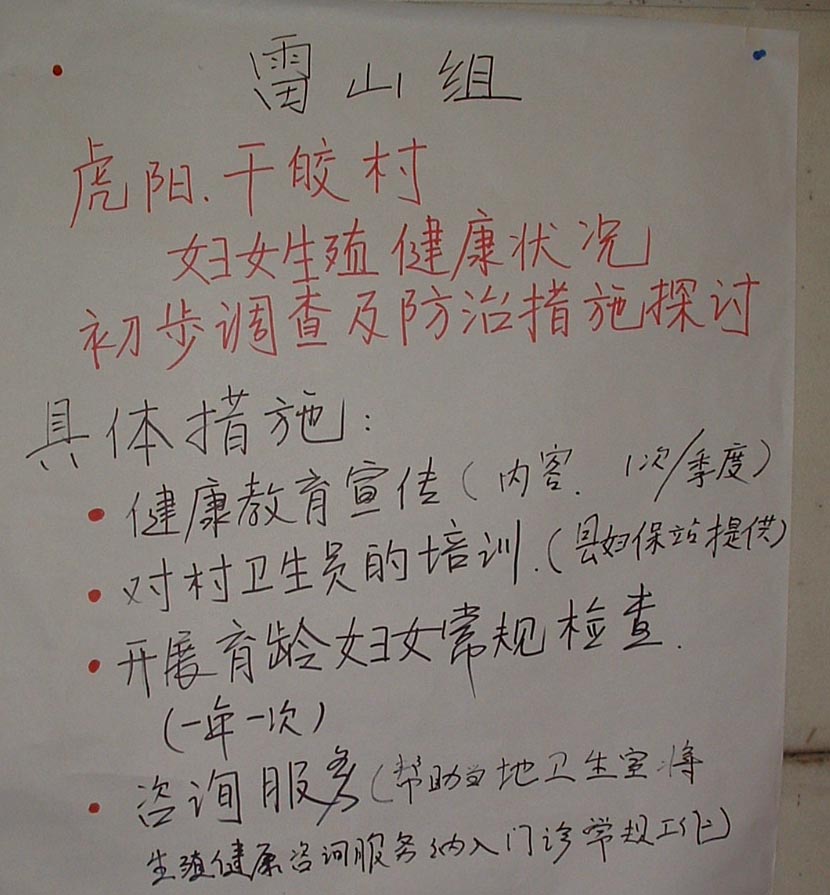 雷山组
虎阳.干皎村
妇女生殖健康状况
初步调查及防治措施探讨
具体措施:
• 健康教育宣传(内容. 1次/季度)
• 对村卫生员的培训.(县妇保站提供)
• 开展育龄妇女常规检查.
(一年一次)
• 咨询服务(帮助当地卫生室将
生殖健康咨询服务纳入门诊常规工作)